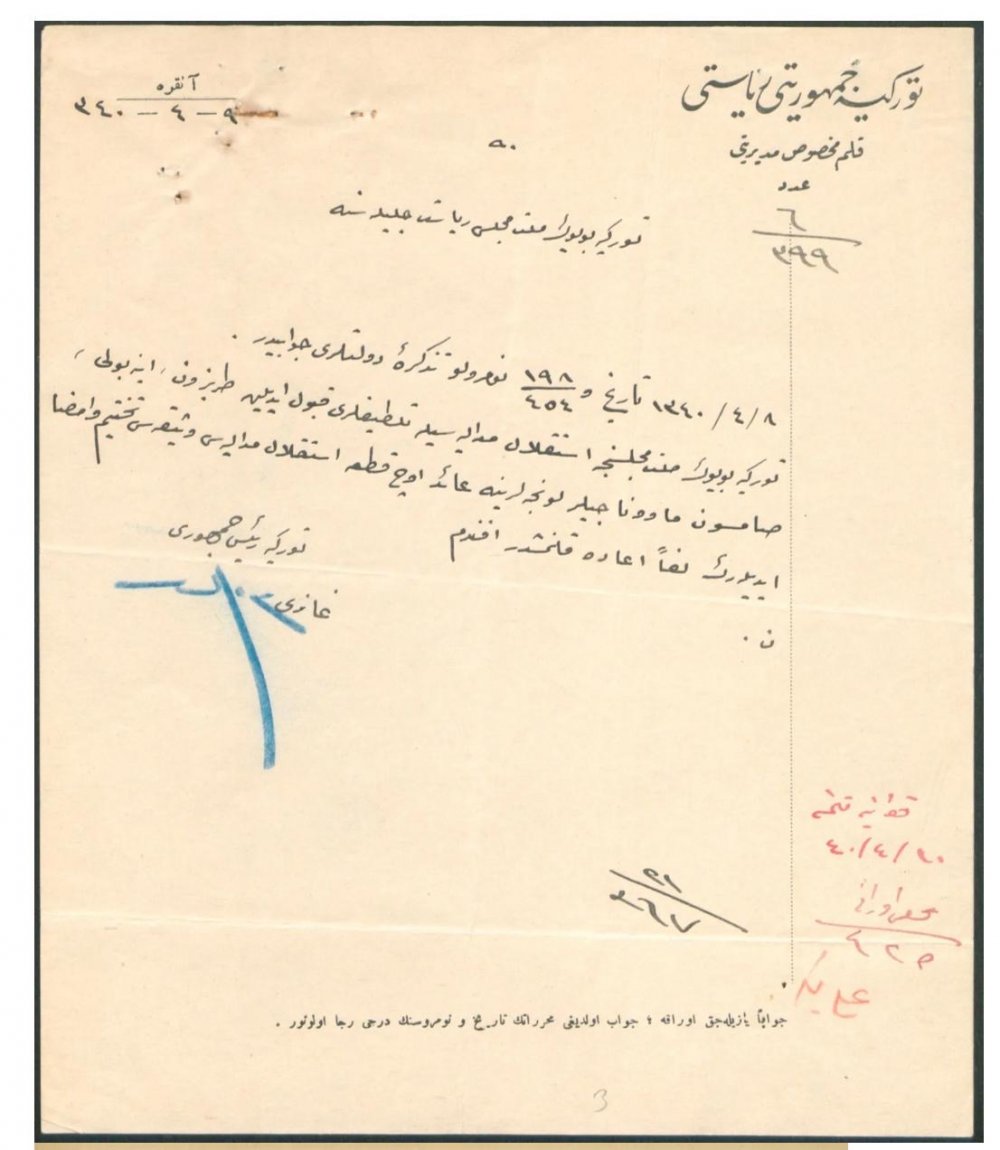 توركيه جمهوريتى رياستى
قلم مخصوص مديريتى
عدد
٦
٣٩٩
آنقره
٩ – ٤ – ٣٤٠
توركيه بويوك ملت مجلسى رياست جليله سنه
٨ / ٤ / ١٣٤٠ تاريخ و ١٩٨ / ٤٥٤ نومرولو تذكرۀ دولتلرى جوابيدر .
توركيه بويوك ملت مجلسنجه استقلال مداليه سيله تلطيفلرى قبول ايديلن طربزون ، اينه بولى ،
صامسون ماوونا جيلر لونجه لرينه عائد اوچ قطعه استقلال مداليه سى وثيقه سى تختيم وامضا
ايديلرك لفاً اعاده قلنمشدر افندم
ن .
توركيه رئيس جمهورى
غازى
٤٠/٤/١٠
محلس اوراق
جواباً يازيله جق اوراقه ؛ جواب اولديغى محرراتك تاريخ و نومروسنك درجى رجا اولونور .
3